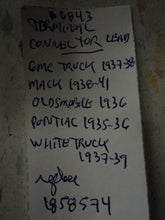 #6843
TERMINAL
CONNECTOR LEAD
GMC TRUCK 1937-38
MACK 1938-41
OLDSMOBILE 1936
PONTIAC 1935-36
WHITE TRUCK
1937-39
1858574